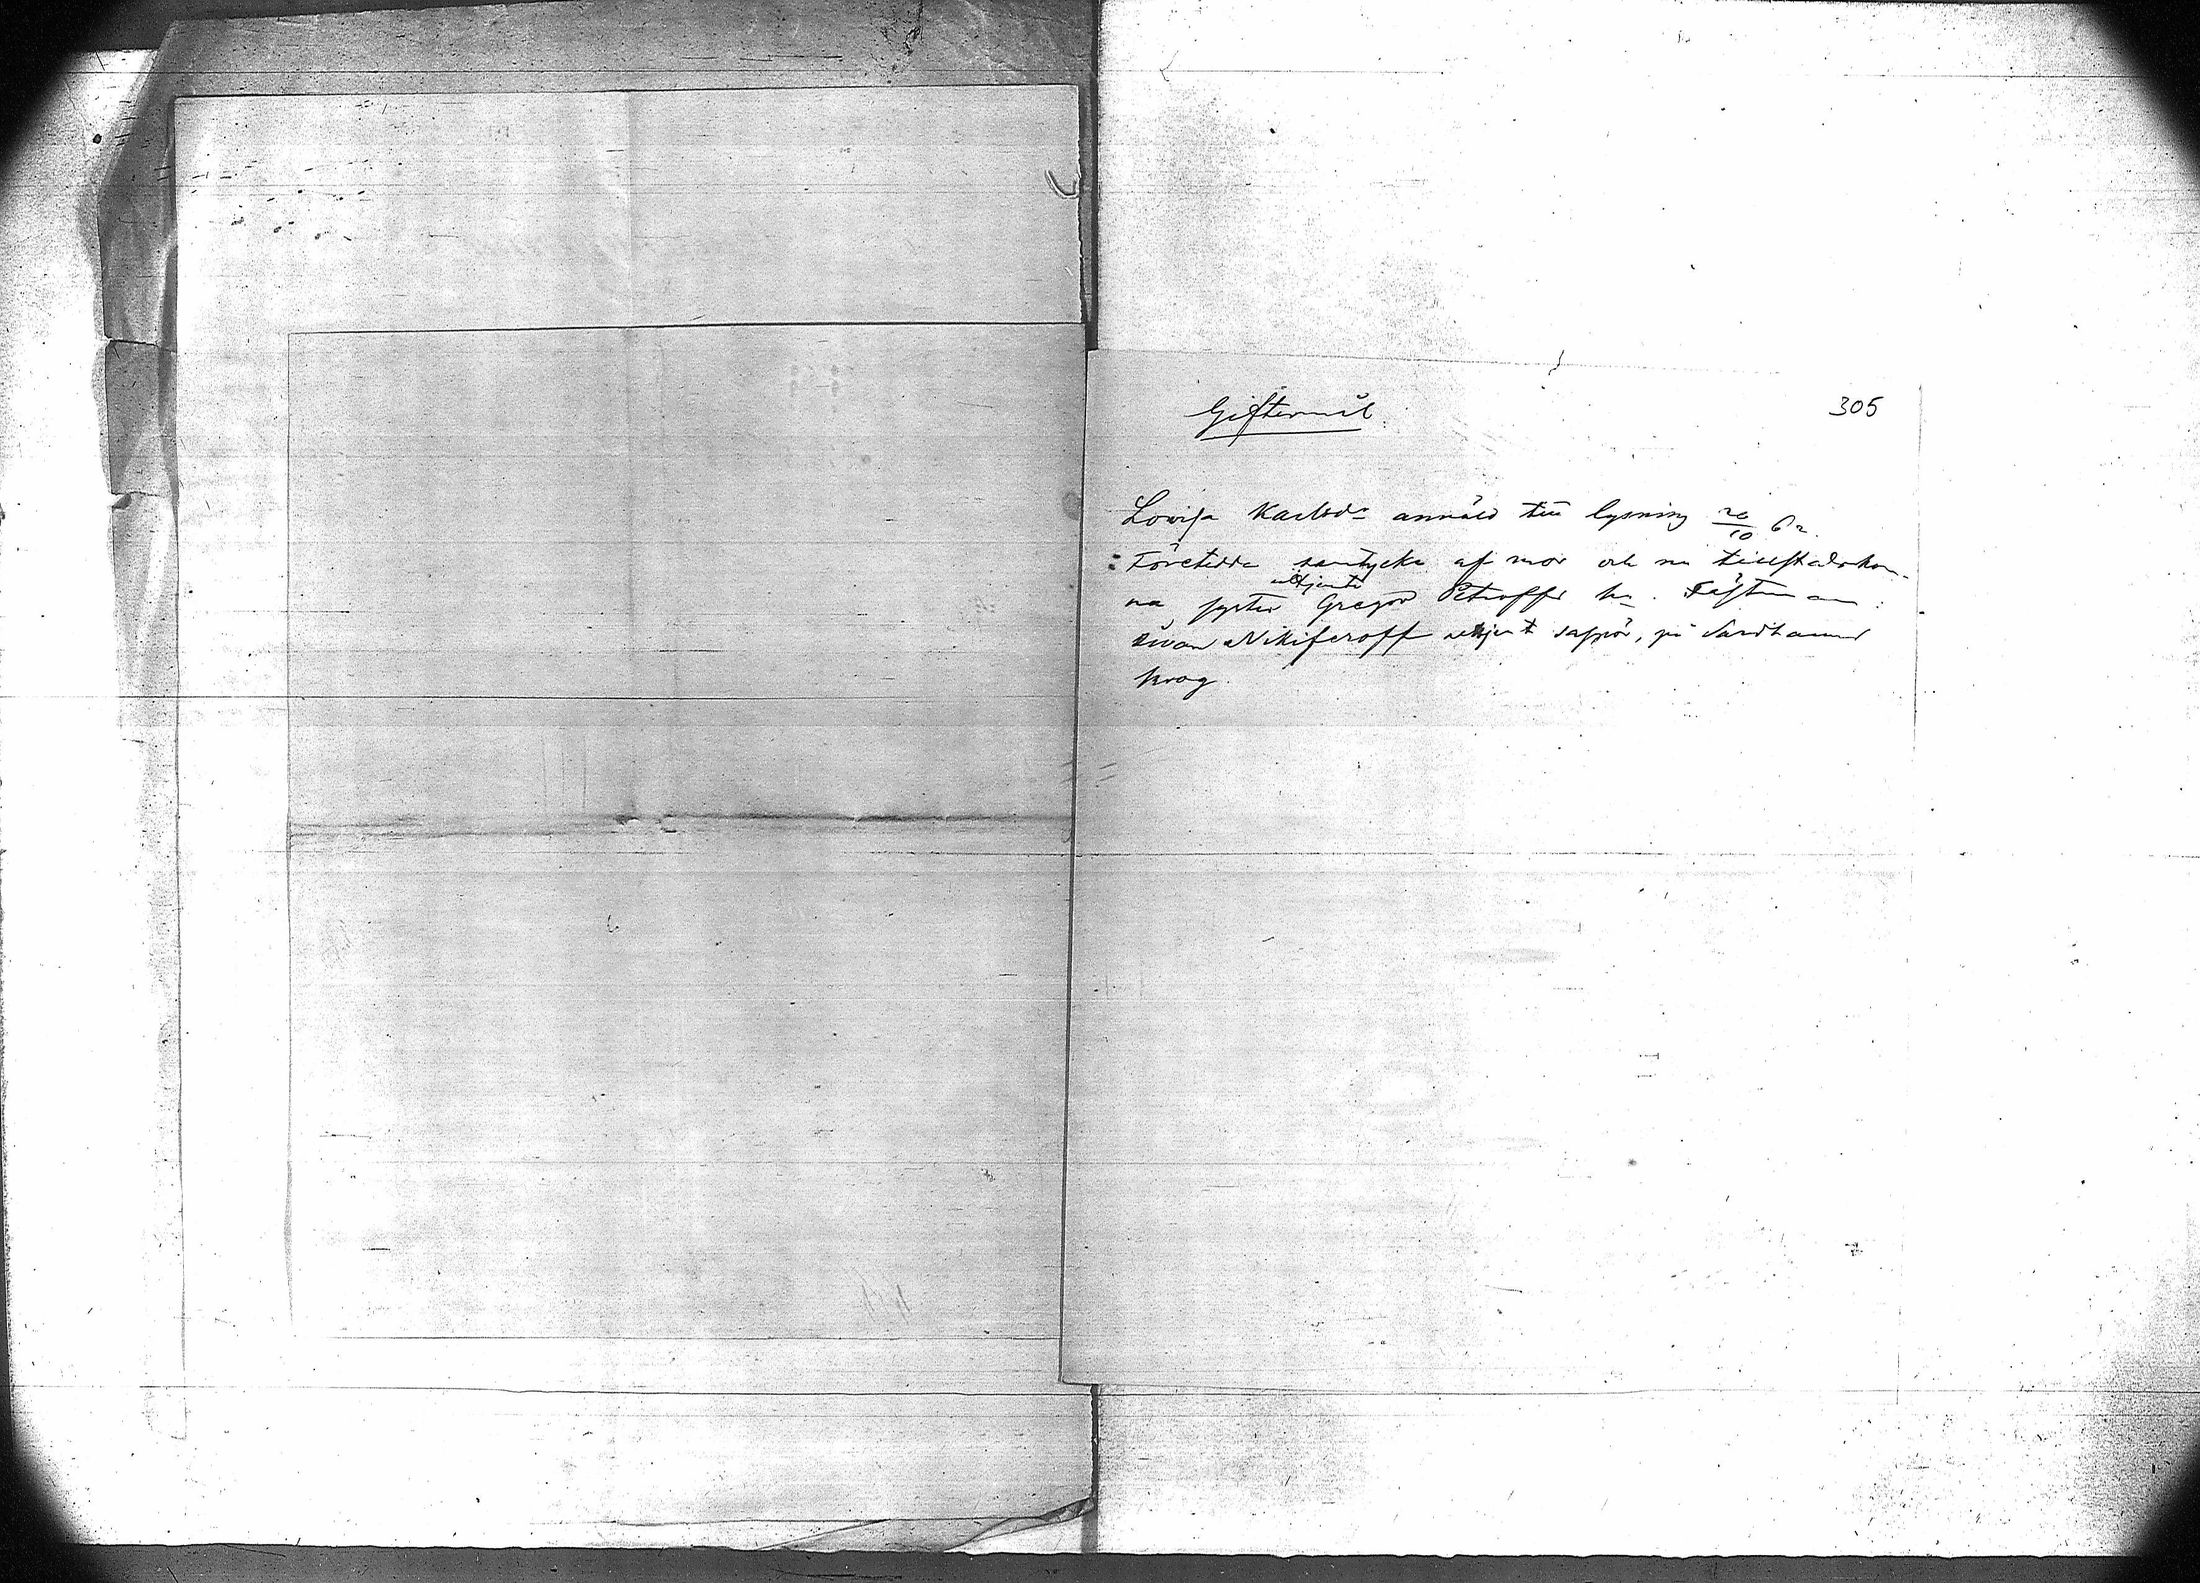 305
Giftermål.
Lovisa Karlsdr anmäld till lysning 20/10 62.
Företedde samtycke af mor och nu tillstädeskom-
na syster utkjente Gregor Petroffs hu. Fästman:
Ivan Nikiforoff utkjent sappör, på Sandhamns
krog.